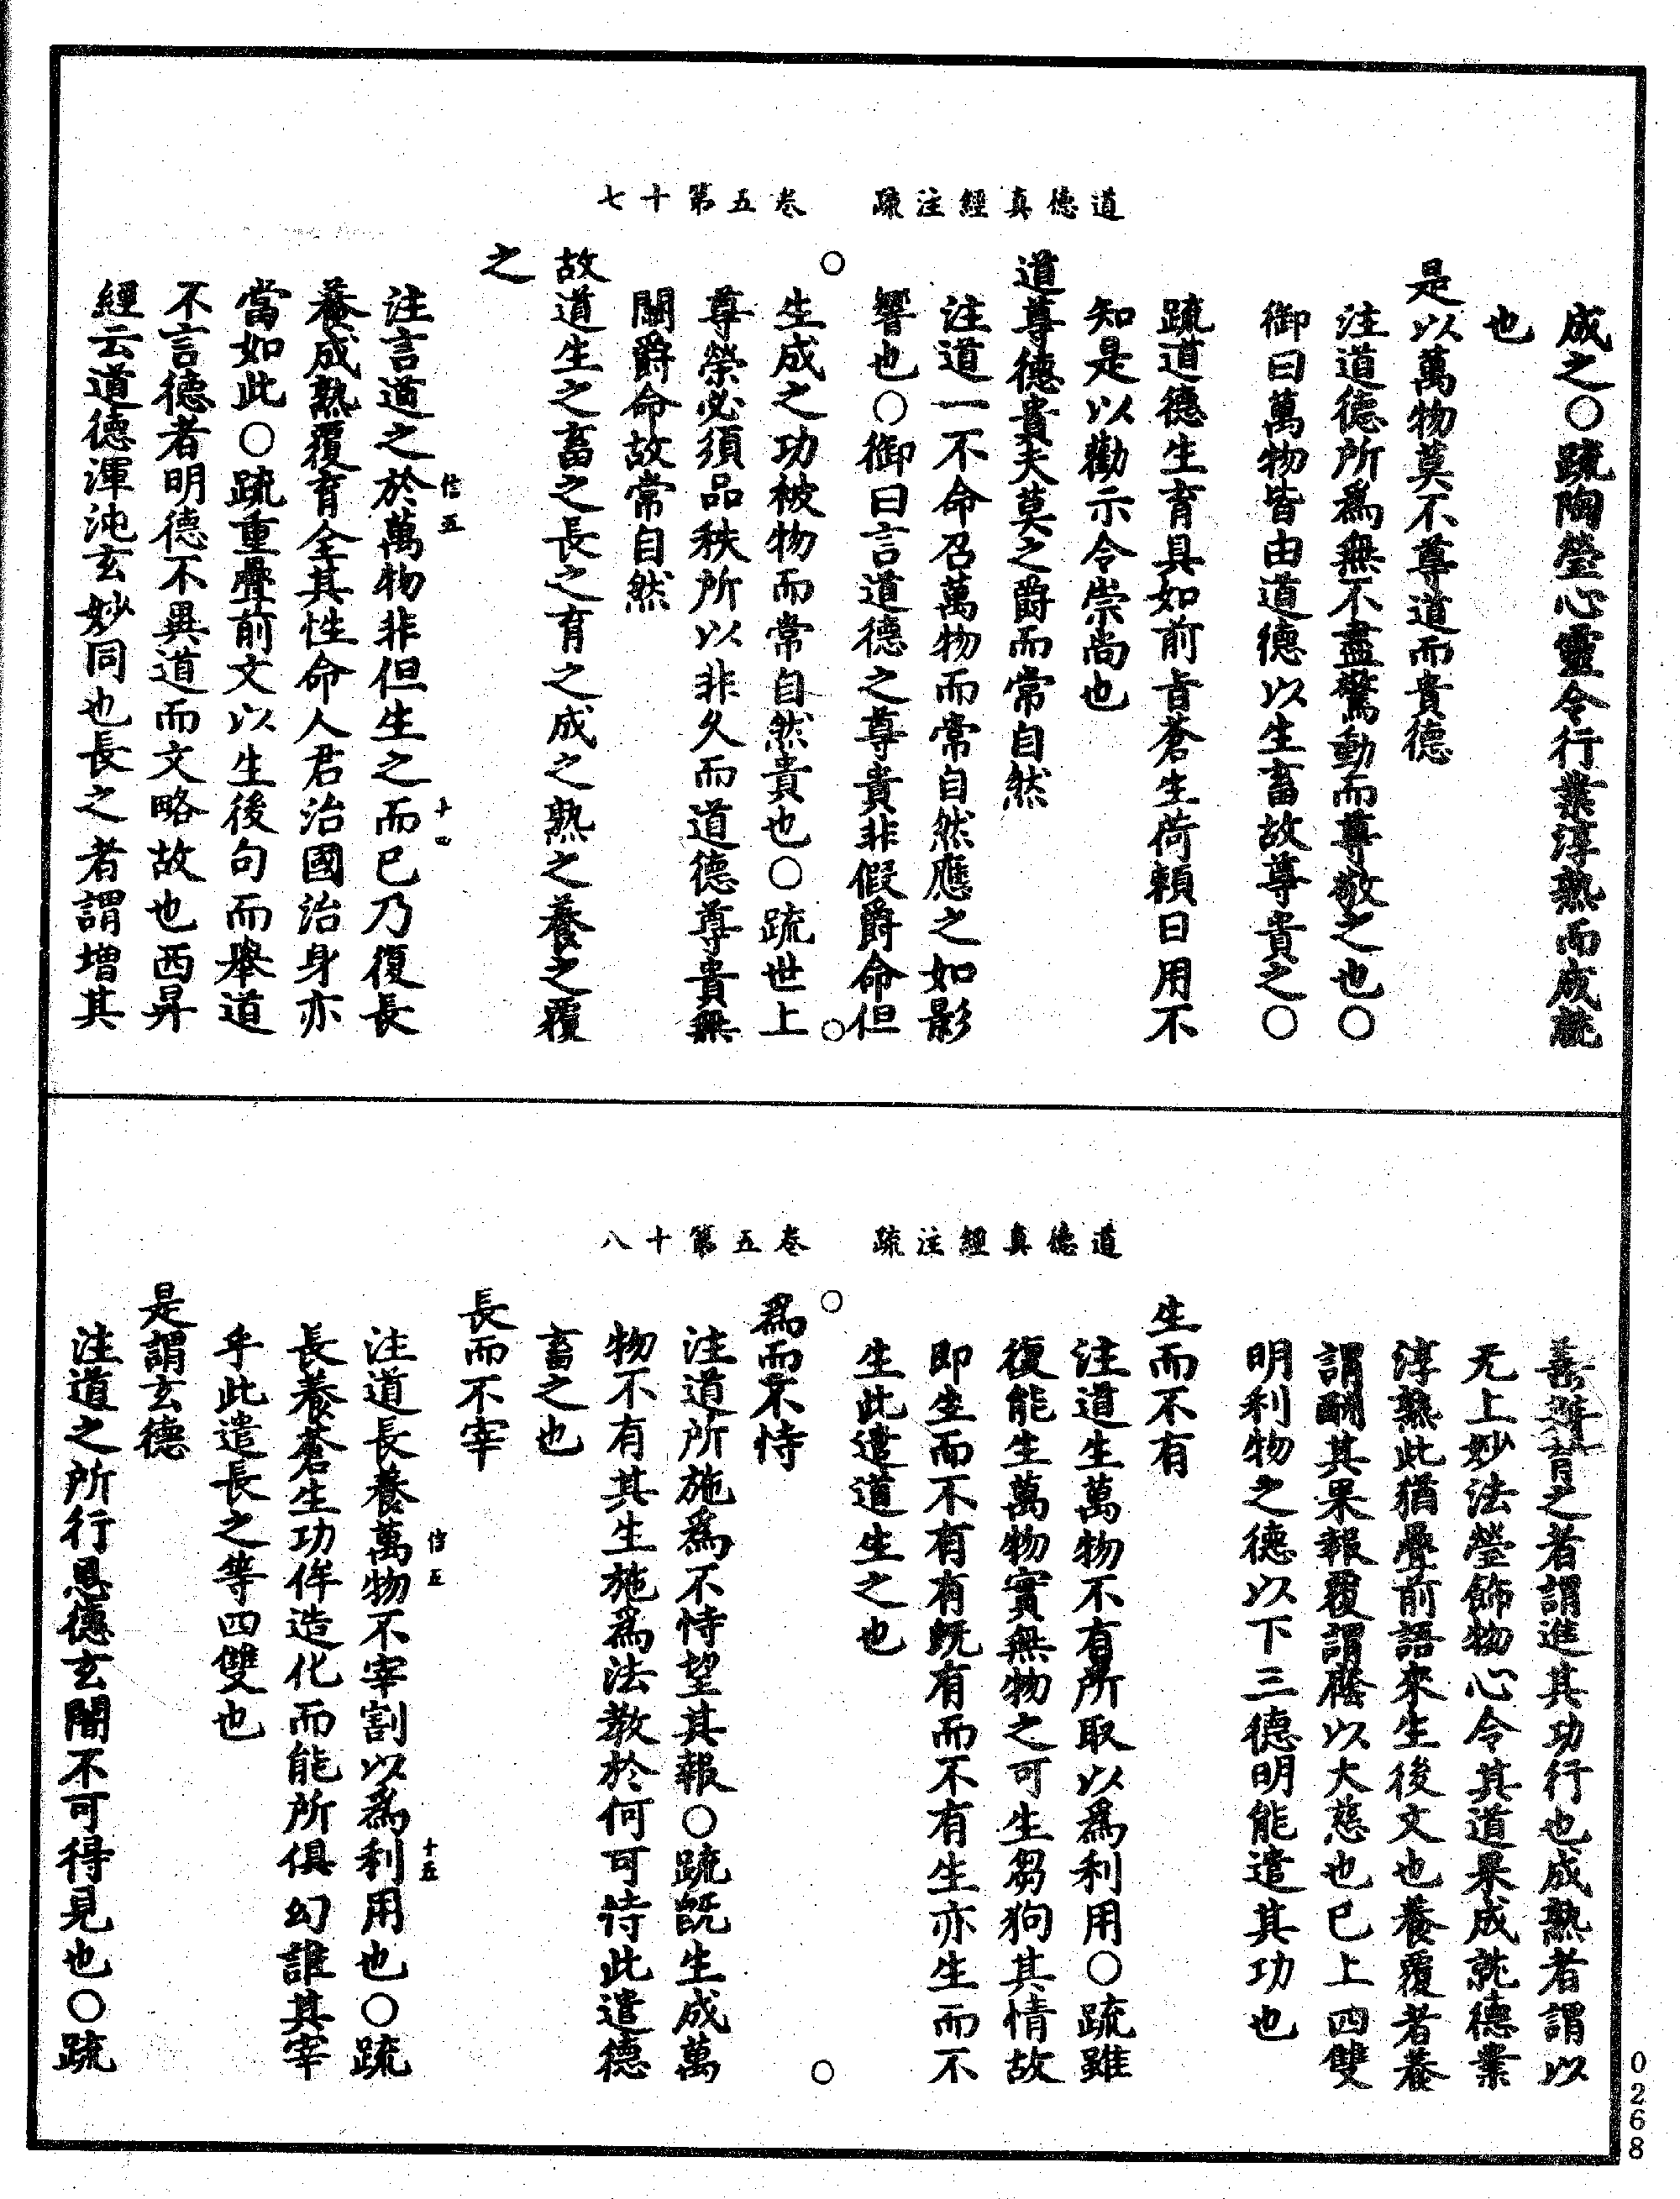 道德真經注疏　卷五第十七
成之○疏陶瑩心靈令行業淳熟而成就
也
是以萬物莫不尊道而貴德
注道德所爲無不盡驚動而尊敬之也○
御曰萬物皆由道德以生畜故尊貴之○
疏道德生育具如前旨蒼生荷賴日用不
知是以勸示令崇尚也
道尊德貴夫莫之爵而常自然
注道一不命召萬物而常自然應之如影
響也○御曰言道德之尊貴非假爵命但
生成之功被物而常自然貴也○疏世上
尊榮必須品秩所以非久而道德尊貴無
關爵命故常自然
故道生之畜之長之育之成之熟之養之覆
之
注言道之於萬物非但生之而已乃復長
養成熟覆育全其性命人君治國治身亦
當如此○疏重疊前文以生後句而舉道
不言德者明德不異道而文略故也西昇
經云道德渾沌玄妙同也長之者謂增其
信五
十四
道德真經注疏　卷五第十八
善牙育之者謂進其功行也成熟者謂以
无上妙法瑩飾物心令其道果成就德業
淳熟此猶疊前語來生後文也養覆者養
謂酬其果報覆謂廕以大慈也已上四雙
明利物之德以下三德明能遣其功也
生而不有
注道生萬物不有所取以爲利用○疏雖
復能生萬物實無物之可生芻狗其情故
即生而不有有既有而不有生亦生而不
生此遣道生之也
爲而不恃
注道所施爲不恃望其報○疏既生成萬
物不有其生施爲法教於何可恃此遣德
畜之也
長而不宰
注道長養萬物不宰割以爲利用也○疏
長養蒼生功侔造化而能所俱幻誰其宰
乎此遣長之等四雙也
是謂玄德
注道之所行恩德玄闇不可得見也○疏
信五
十五
0268